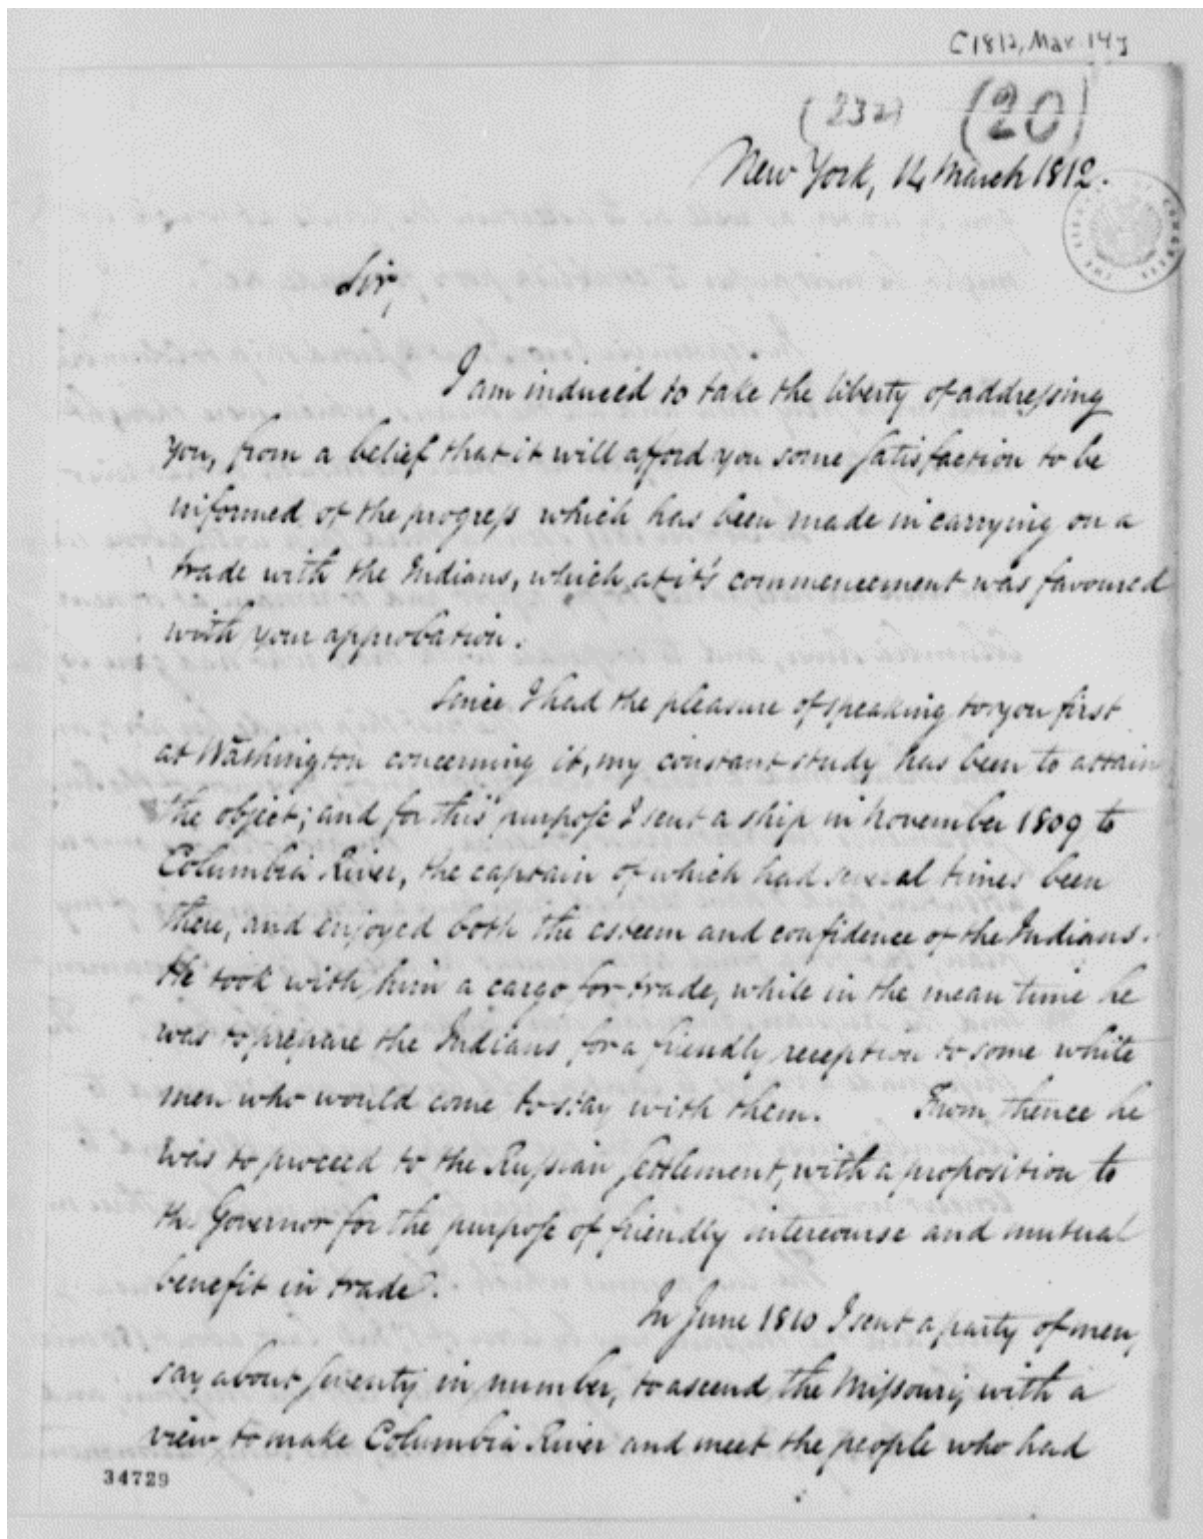 C1812, Mar 14]
(232) (20)
New York, 14 March 1812.
Sir,
I am induced to take the liberty of addressing
you, from a belief that it will afford you some satisfaction to be
informed of the progress which has been made in carrying on a
trade with the Indians, which at it's commencement was favoured
with your approbation.
Since I had the pleasure of speaking to you first
at Washington concerning it, my constant study has been to attain
the object; and for this purpose I sent a ship in November 1809 to
Columbia River, the captain of which had several times been
there, and enjoyed both the esteem and confidence of the Indians.
He took with him a cargo for trade, while in the mean time he
was to prepare the Indians for a friendly reception to some white
men who would come to stay with them. From thence he
was to proceed to the Russian settlement, with a proposition to
the Governor for the purpose of friendly intercourse and mutual
benefit in trade.
In June 1810 I sent a party of men,
say about seventy in number, to ascend the Missouri, with a
view to make Columbia River and meet the people who had
34729